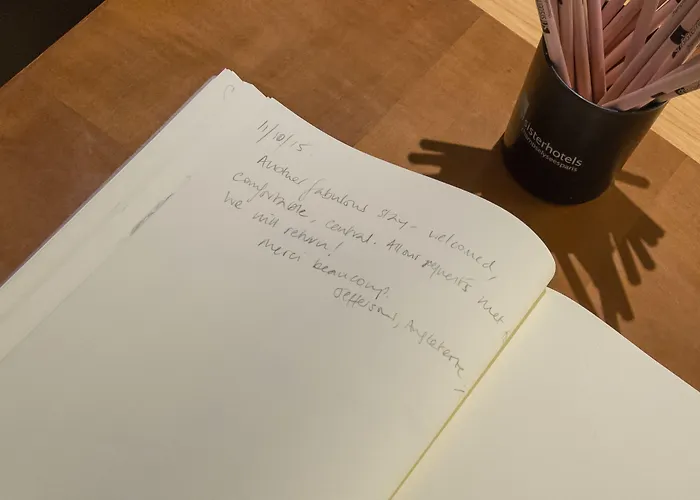 11/10/15.
Another fabulous stay - welcomed,
comfortable, central. All our requests met
We will return!
Merci beaucoup!
Jeffersons, Angleterre
sisterhotels